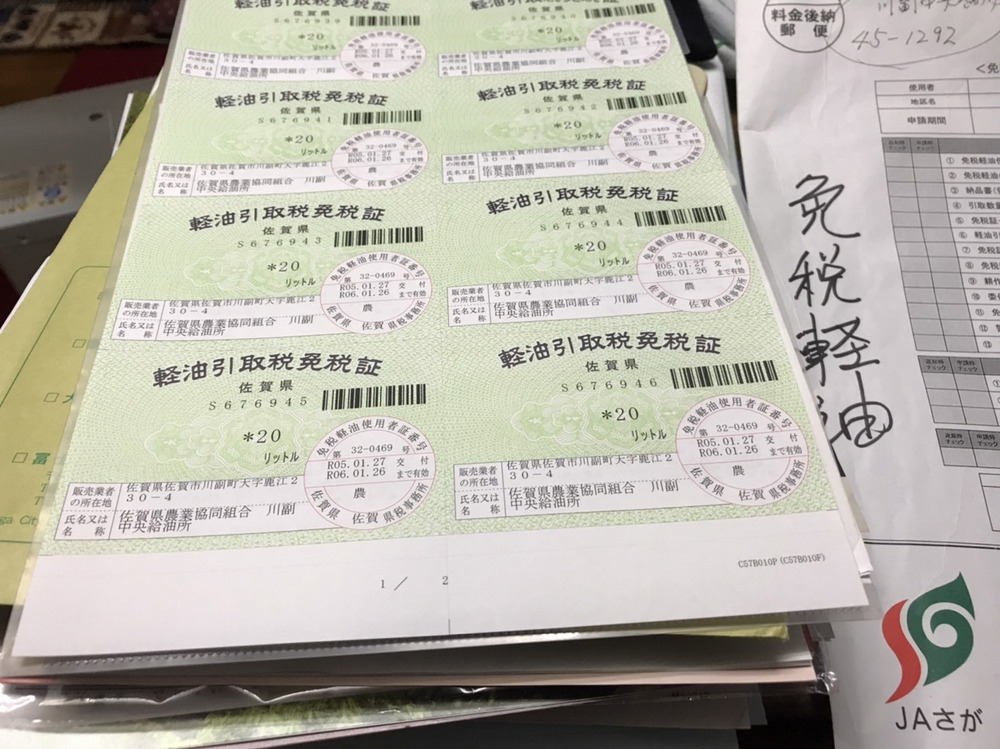 S676939
*20
リットル
32-0469
R05.01.27 交付
R06.01.26 まで有効
佐賀 県税事務所
販売業者の所在地
佐賀県佐賀市川副町大字鹿江2
30-4
氏名又は名称
佐賀県農業協同組合 川副
中央給油所
S676940
*20
リットル
32-0469
R05.01.27 交付
R06.01.26 まで有効
佐賀県佐賀市川副町大字鹿江2
30-4
佐賀県農業協同組合 川副
中央給油所
軽油引取税免税証
佐賀県
S676941
*20
リットル
免税軽油使用者証番号
第 32-0469 号
R05.01.27 交付
R06.01.26 まで有効
農
佐賀県 佐賀 県税事務所
販売業者の所在地
佐賀県佐賀市川副町大字鹿江2
30-4
氏名又は名称
佐賀県農業協同組合 川副
中央給油所
軽油引取税免税証
佐賀県
S676942
*20
リットル
免税軽油使用者証番号
第 32-0469 号
R05.01.27 交付
R06.01.26 まで有効
農
佐賀県 佐賀 県税事務所
販売業者の所在地
佐賀県佐賀市川副町大字鹿江2
30-4
氏名又は名称
佐賀県農業協同組合 川副
中央給油所
軽油引取税免税証
佐賀県
S676943
*20
リットル
免税軽油使用者証番号
第 32-0469 号
R05.01.27 交付
R06.01.26 まで有効
農
佐賀県 佐賀 県税事務所
販売業者の所在地
佐賀県佐賀市川副町大字鹿江2
30-4
氏名又は名称
佐賀県農業協同組合 川副
中央給油所
軽油引取税免税証
佐賀県
S676944
*20
リットル
免税軽油使用者証番号
第 32-0469 号
R05.01.27 交付
R06.01.26 まで有効
農
佐賀県 佐賀 県税事務所
販売業者の所在地
佐賀県佐賀市川副町大字鹿江2
30-4
氏名又は名称
佐賀県農業協同組合 川副
中央給油所
軽油引取税免税証
佐賀県
S676945
*20
リットル
免税軽油使用者証番号
第 32-0469 号
R05.01.27 交付
R06.01.26 まで有効
農
佐賀県 佐賀 県税事務所
販売業者の所在地
佐賀県佐賀市川副町大字鹿江2
30-4
氏名又は名称
佐賀県農業協同組合 川副
中央給油所
軽油引取税免税証
佐賀県
S676946
*20
リットル
免税軽油使用者証番号
第 32-0469 号
R05.01.27 交付
R06.01.26 まで有効
農
佐賀県 佐賀 県税事務所
販売業者の所在地
佐賀県佐賀市川副町大字鹿江2
30-4
氏名又は名称
佐賀県農業協同組合 川副
中央給油所
1 / 2
C57B010P (C57B010F)
料金後納
郵便
45-1292
免税軽油
<免
使用者
地区名
申請期間
① 免税軽油
② 免税軽油
③ 納品書
④ 引取数量
⑤ 免税証
⑥ 軽油引
⑦ 免税
⑧ 免税
⑨ 耕作
⑩ 委
⑪ 免
⑫
⑬
JAさが
□ 富